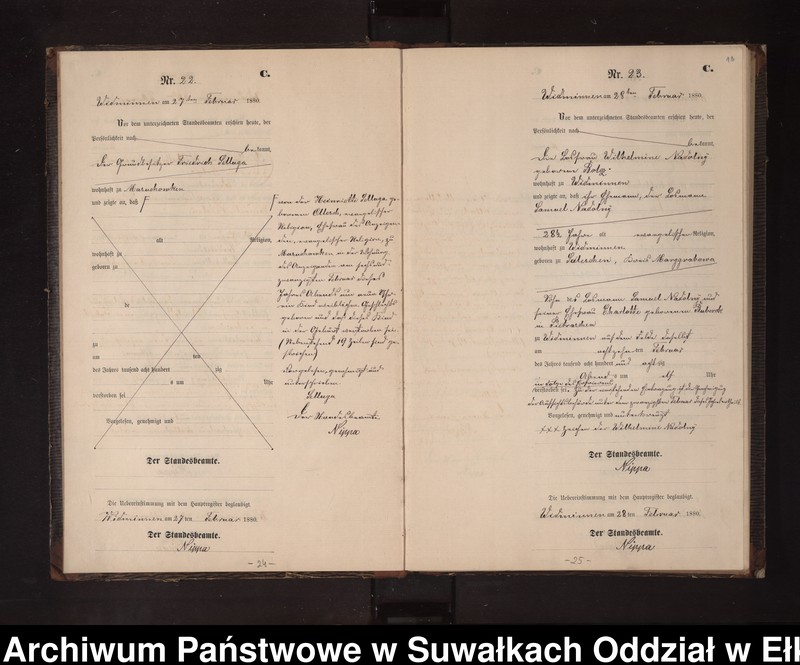 Nr. 22.
C.
Widminnen am 27ten Februar 1880.
Vor dem unterzeichneten Standesbeamten erschien heute, der
Persönlichkeit nach
bekannt,
Der Grundbesitzer Friedrich
wohnhaft zu
und zeigte an, daß
alt Religion,
wohnhaft zu
geboren zu
de
zu
am ten
des Jahres tausend acht hundert zig
um Uhr
verstorben sei
Vorgelesen, genehmigt und
von der Henriette ge-
borenen evangelischer
Religion, Ehefrau des Anzeigen-
den, evangelischer Religion, zu
in der Wohnung
des Anzeigenden am
zwanzigsten Februar dieses
Jahres Abends um neun Uhr
ein Kind weiblichen Geschlechts
geboren und daß dieses Kind
in der Geburt verstorben sei.
(Nebenstehend 19 Zeilen sind ge-
strichen)
Vorgelesen, genehmigt und
unterschrieben
Der Standesbeamte
Nippa
Der Standesbeamte.
Die Uebereinstimmung mit dem Hauptregister beglaubigt.
Widminnen am 27 ten Februar 1880.
Der Standesbeamte.
Nippa
- 24 -
13
Nr. 23.
C.
Widminnen am 28ten Februar 1880.
Vor dem unterzeichneten Standesbeamten erschien heute, der
Persönlichkeit nach
bekannt,
Die Losfrau Wilhelmine Nadolny
geborene
wohnhaft zu Widminnen
und zeigte an, daß ihr Ehemann, der Losmann
Samuel Nadolny
28½ Jahre alt evangelischer Religion,
wohnhaft zu Widminnen
geboren zu Kreis Marggrabowa
Sohn des Losmann Samuel Nadolny und
seiner Ehefrau Charlotte geborenen
in
zu Widminnen auf dem Felde daselbst
am achtzehn ten Februar
des Jahres tausend acht hundert und acht zig
Abends um elf Uhr
verstorben sei.
Vorgelesen, genehmigt und unterkreuzt
+++ Zeichen der Wilhelmine Nadolny
Der Standesbeamte.
Nippa
Die Uebereinstimmung mit dem Hauptregister beglaubigt.
Widminnen am 28 ten Februar 1880.
Der Standesbeamte.
Nippa
- 25 -
Archiwum Państwowe w Suwałkach Oddział w Eł